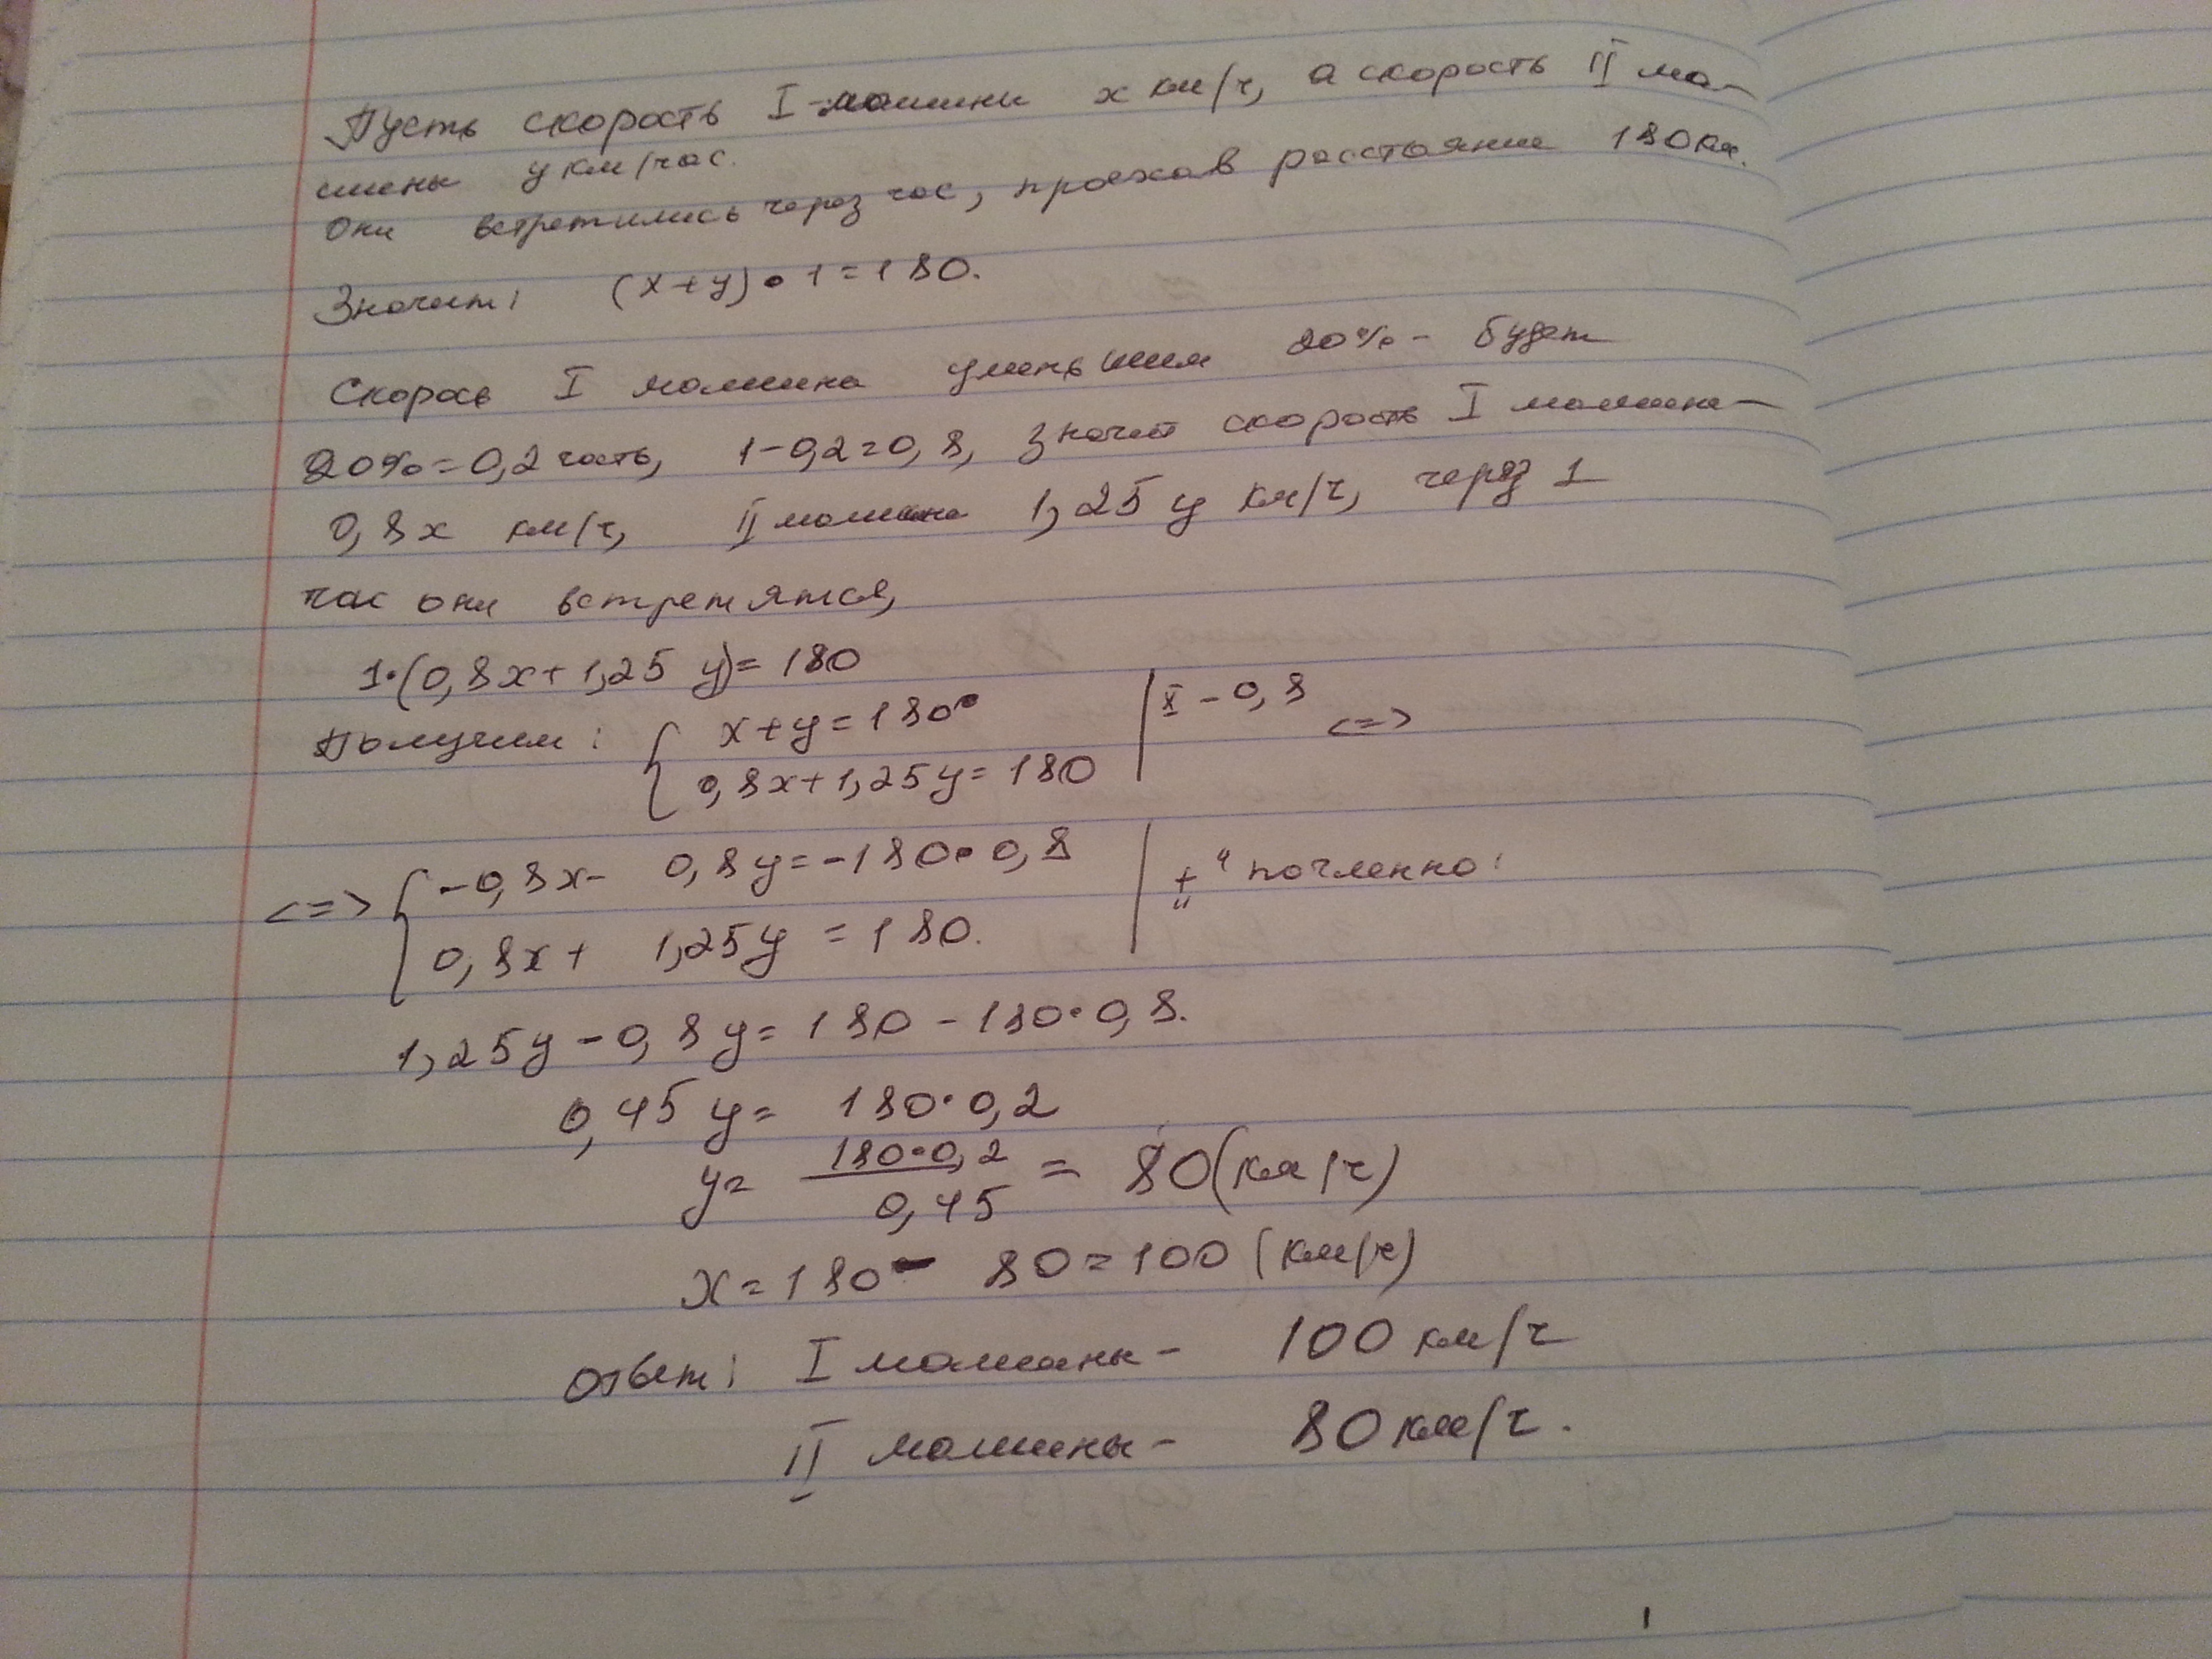 Пусть скорость I машины x км/ч, а скорость II ма-
шины y км/час.
Они встретились через час, проехав расстояние 180 км.
Значит: (x+y)•1=180.
Скорось I машина уменьшим 20% - будет
20%=0,2 часть, 1-0,2=0,8, значит скорость I машина-
0,8x км/ч, II машина 1,25y км/ч, через 1
час они встретятся,
1•(0,8x+1,25y)=180
Получим: { x+y=180 | x -0,8 <=>
0,8x+1,25y=180
<=> { -0,8x- 0,8y=-180•0,8 | "+" почленно:
0,8x+ 1,25y=180.
1,25y-0,8y=180-180•0,8.
0,45y= 180•0,2
y= 180•0,2 / 0,45 = 80(км/ч)
x=180- 80=100(км/ч)
Ответ: I машины- 100 км/ч
II машины- 80 км/ч.